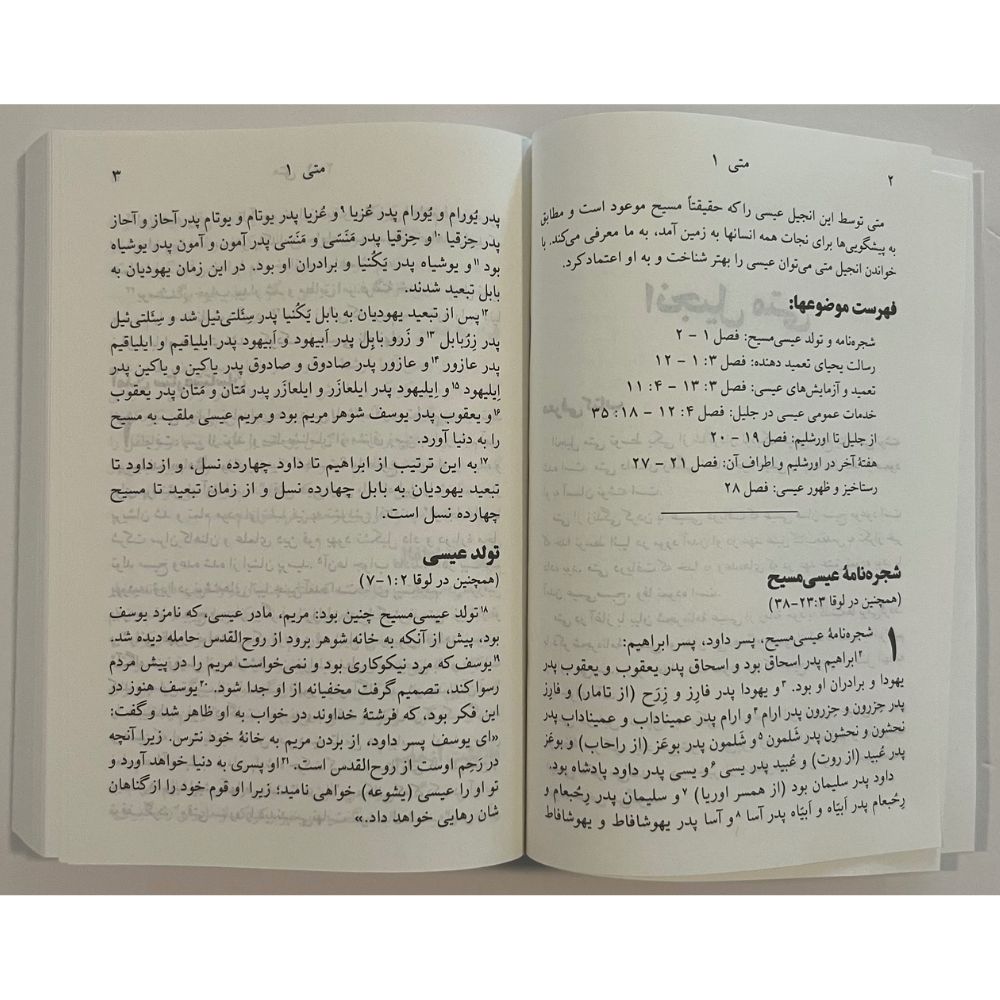 متی ۱
۲
متی توسط این انجیل عیسی را که حقیقتاً مسیح موعود است و مطابق
به پیشگویی‌ها برای نجات همه انسانها به زمین آمد، به ما معرفی می‌کند. با
خواندن انجیل متی می‌توان عیسی را بهتر شناخت و به او اعتماد کرد.
فهرست موضوعها:
شجره‌نامه و تولد عیسی‌مسیح: فصل ۱ – ۲
رسالت یحیای تعمید دهنده: فصل ۳:‏۱ – ۱۲
تعمید و آزمایش‌های عیسی: فصل ۳:‏۱۳ – ۴:‏۱۱
خدمات عمومی عیسی در جلیل: فصل ۴:‏۱۲ – ۱۸:‏۳۵
از جلیل تا اورشلیم: فصل ۱۹ – ۲۰
هفتهٔ آخر در اورشلیم و اطراف آن: فصل ۲۱ – ۲۷
رستاخیز و ظهور عیسی: فصل ۲۸
شجره‌نامهٔ عیسی‌مسیح
(همچنین در لوقا ۳:‏۲۳–۳۸)
۱ شجره‌نامهٔ عیسی‌مسیح، پسر داود، پسر ابراهیم:
۲ابراهیم پدر اسحاق بود و اسحاق پدر یعقوب و یعقوب پدر
یهودا و برادران او بود. ۳و یهودا پدر فارِز و زِرَح (از تامار) و فارِز
پدر حِزرون و حِزرون پدر ارام ۴و ارام پدر عمیناداب و عمیناداب پدر
نحشون و نحشون پدر شَلمون ۵و شَلمون پدر بوعَز (از راحاب) و بوعَز
پدر عُبید (از روت) و عُبید پدر یسی ۶و یسی پدر داود پادشاه بود.
داود پدر سلیمان بود (از همسر اوریا) ۷و سلیمان پدر رِحُبعام و
رِحُبعام پدر اَبیّاه و اَبیّاه پدر آسا ۸و آسا پدر یهوشافاط و یهوشافاط
متی ۱
۳
پدر یُورام و یُورام پدر عُزیا ۹و عُزیا پدر یوتام و یوتام پدر آحاز و آحاز
پدر حِزقیا ۱۰و حِزقیا پدر مَنَسّی و مَنَسّی پدر آمون و آمون پدر یوشیاه
بود ۱۱و یوشیاه پدر یَکُنیا و برادران او بود. در این زمان یهودیان به
بابل تبعید شدند.
۱۲پس از تبعید یهودیان به بابل یَکُنیا پدر سِئَلتی‌ئیل شد و سِئَلتی‌ئیل
پدر زِرُبابل ۱۳و زَرو بابِل پدر اَبیهود و اَبیهود پدر ایلیاقیم و ایلیاقیم
پدر عازور ۱۴و عازور پدر صادوق و صادوق پدر یاکین و یاکین پدر
ایلیهود ۱۵و ایلیهود پدر ایلعازَر و ایلعازَر پدر مَتان و مَتان پدر یعقوب
۱۶و یعقوب پدر یوسف شوهر مریم بود و مریم عیسی ملقب به مسیح
را به دنیا آورد.
۱۷به این ترتیب از ابراهیم تا داود چهارده نسل، و از داود تا
تبعید یهودیان به بابل چهارده نسل و از زمان تبعید تا مسیح
چهارده نسل است.
تولد عیسی
(همچنین در لوقا ۲:‏۱–۷)
۱۸تولد عیسی‌مسیح چنین بود: مریم، مادر عیسی، که نامزد یوسف
بود، پیش از آنکه به خانه شوهر برود از روح‌القدس حامله دیده شد.
۱۹یوسف که مرد نیکوکاری بود و نمی‌خواست مریم را در پیش مردم
رسوا کند، تصمیم گرفت مخفیانه از او جدا شود. ۲۰یوسف هنوز در
این فکر بود، که فرشتهٔ خداوند در خواب به او ظاهر شد و گفت:
«ای یوسف پسر داود، از بردن مریم به خانهٔ خود نترس. زیرا آنچه
در رَحِم اوست از روح‌القدس است. ۲۱او پسری به دنیا خواهد آورد و
تو او را عیسی (یشوعه) خواهی نامید؛ زیرا او قوم خود را از گناهان
شان رهایی خواهد داد.»